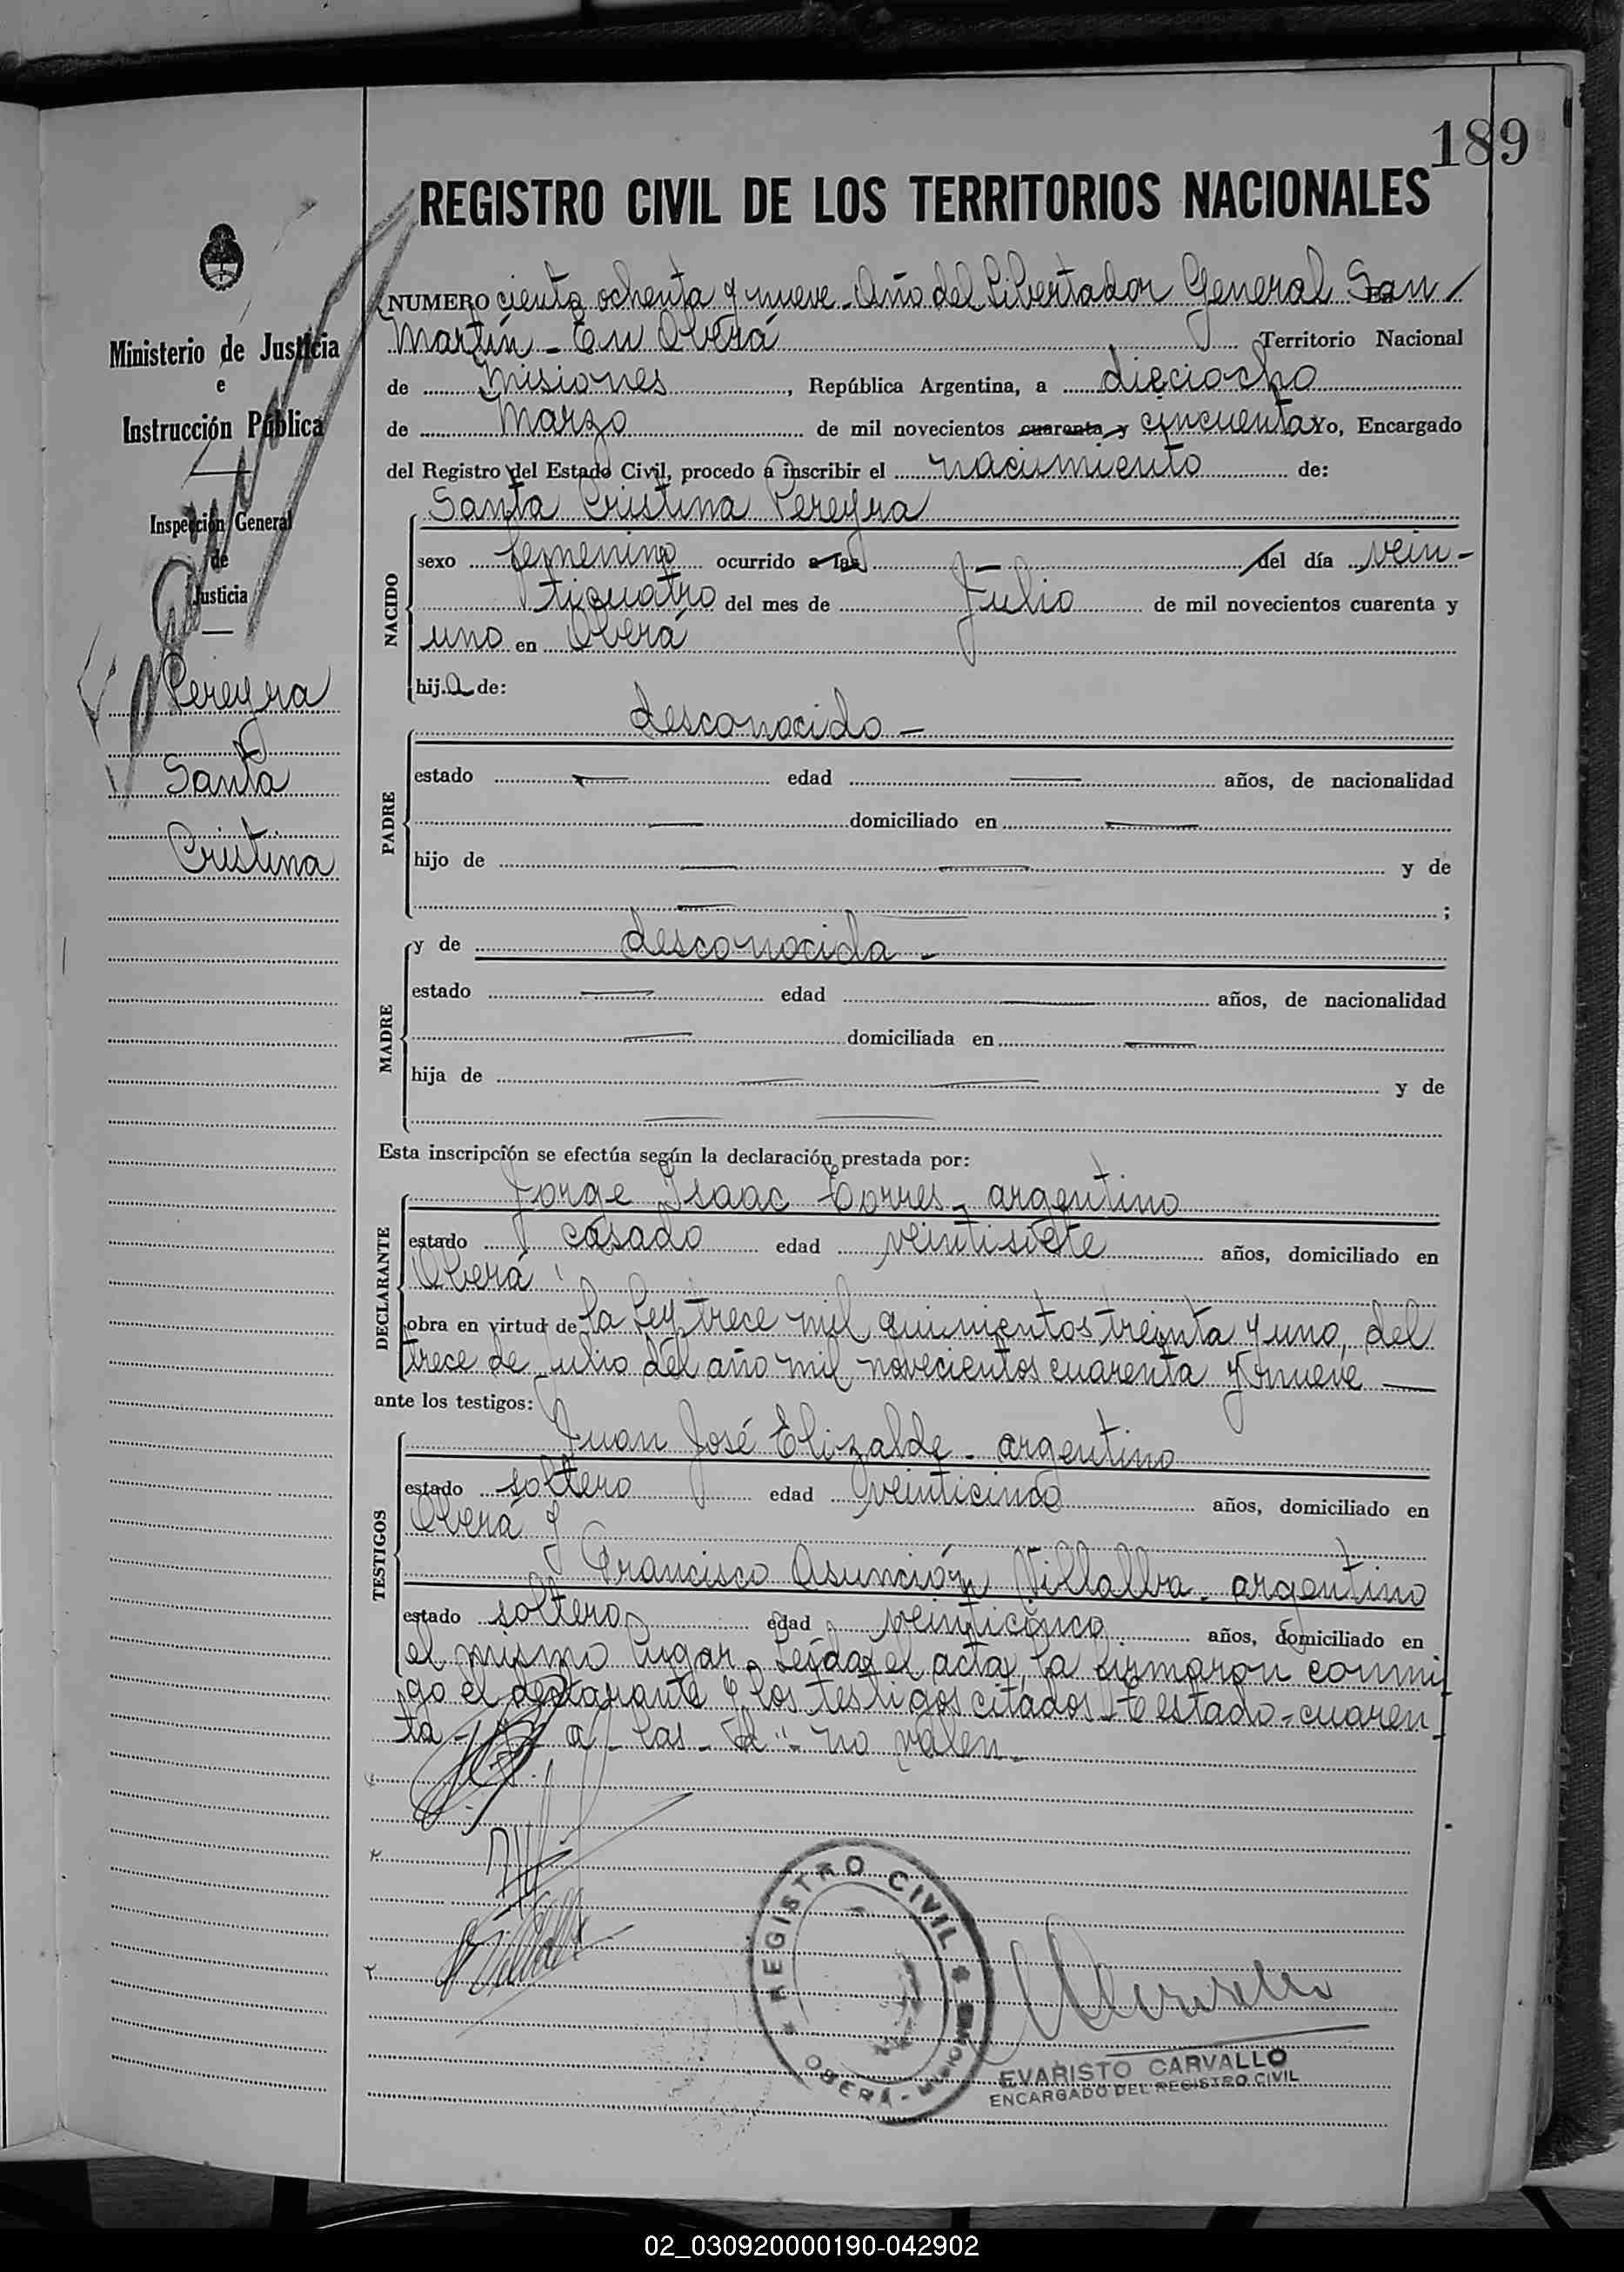 189
REGISTRO CIVIL DE LOS TERRITORIOS NACIONALES
Ministerio de Justicia
e
Instrucción Pública
Inspección General
de
Justicia
Pereyra
Santa
Cristina
NUMERO ciento ochenta y nueve - Año del Libertador General San
Martín - En Oberá Territorio Nacional
de Misiones, República Argentina, a dieciocho
de Marzo de mil novecientos cuarenta y cincuenta Yo, Encargado
del Registro del Estado Civil, procedo a inscribir el nacimiento de:
Santa Cristina Pereyra
NACIDO
sexo femenino ocurrido a las — del día vein-
ticuatro del mes de Julio de mil novecientos cuarenta y
uno en Oberá
hija de:
PADRE
desconocido —
estado — edad — años, de nacionalidad
— domiciliado en —
hijo de — — y de
— ;
MADRE
y de desconocida -
estado — edad — años, de nacionalidad
— domiciliada en —
hija de — — y de
— —
Esta inscripción se efectúa según la declaración prestada por:
DECLARANTE
Jorge Isaac Torres - argentino
estado casado edad veintisiete años, domiciliado en
Oberá
obra en virtud de la Ley trece mil quinientos treinta y uno, del
trece de Julio del año mil novecientos cuarenta y nueve —
ante los testigos:
TESTIGOS
Juan José Elizalde - argentino
estado soltero edad veinticinco años, domiciliado en
Oberá y
Francisco Asunción Villalba - argentino
estado soltero edad veinticinco años, domiciliado en
el mismo lugar. Leída el acta, la firmaron conmi-
go el declarante y los testigos citados - Testado - cuaren-
ta - a - las - no valen -
REGISTRO CIVIL
OBERÁ - MISIONES
EVARISTO CARVALLO
ENCARGADO DEL REGISTRO CIVIL
02_030920000190-042902